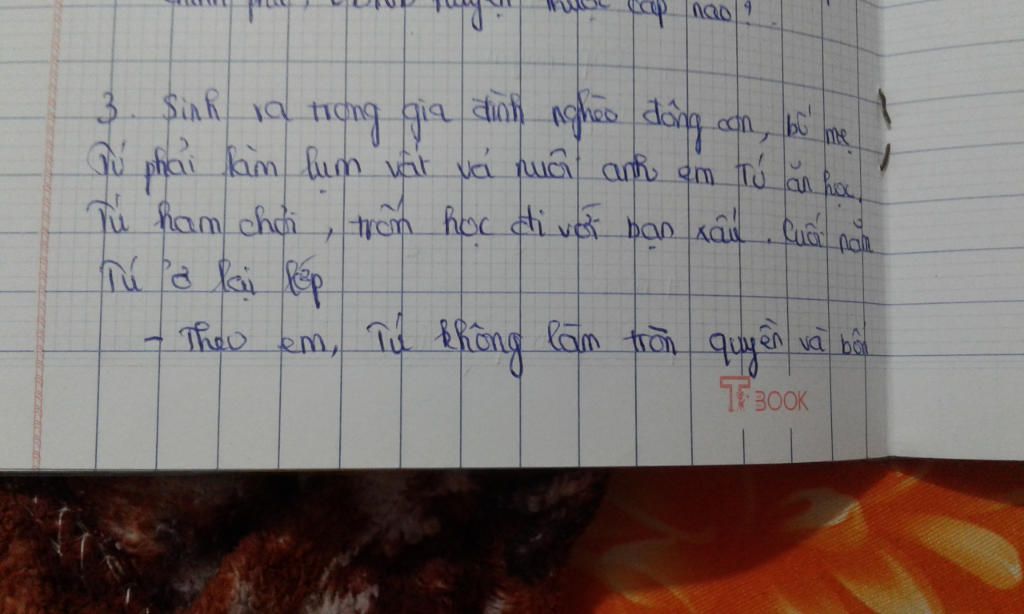 thành phố, huyện thuộc cấp nào?
3. Sinh ra trong gia đình nghèo đông con, bố mẹ
Tú phải làm lụm vất vả nuôi anh em Tú ăn học.
Tú ham chơi, trốn học đi với bạn xấu. Cuối năm
Tú ở lại lớp
- Theo em, Tú không làm tròn quyền và bổn
TK BOOK